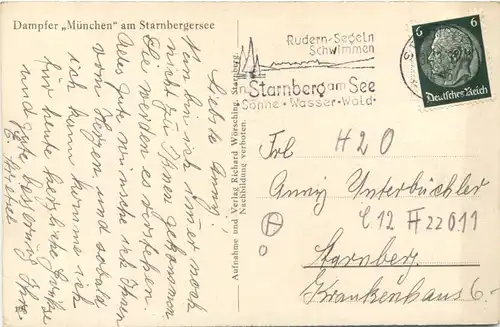 Dampfer „München“ am Starnbergersee
Liebe Anny!
Nun bin ich immer noch
nicht zu Ihnen gekommen
Sie werden es verstehen.
Alles gute wünsche ich Ihnen
vom Herzen und sobald
ich kann komme ich
für heute herzliche Grüße
und gute Besserung Ihre
E.
Aufnahme und Verlag Richard Wörsching, Starnberg.
Nachbildung verboten.
Rudern-Segeln
Schwimmen
in Starnberg am See
Sonne·Wasser·Wald·
6 6
Deutsches Reich
H20
Frl
Anny Unterbüchler
C12 H22O11
Starnberg
Krankenhaus 6.-